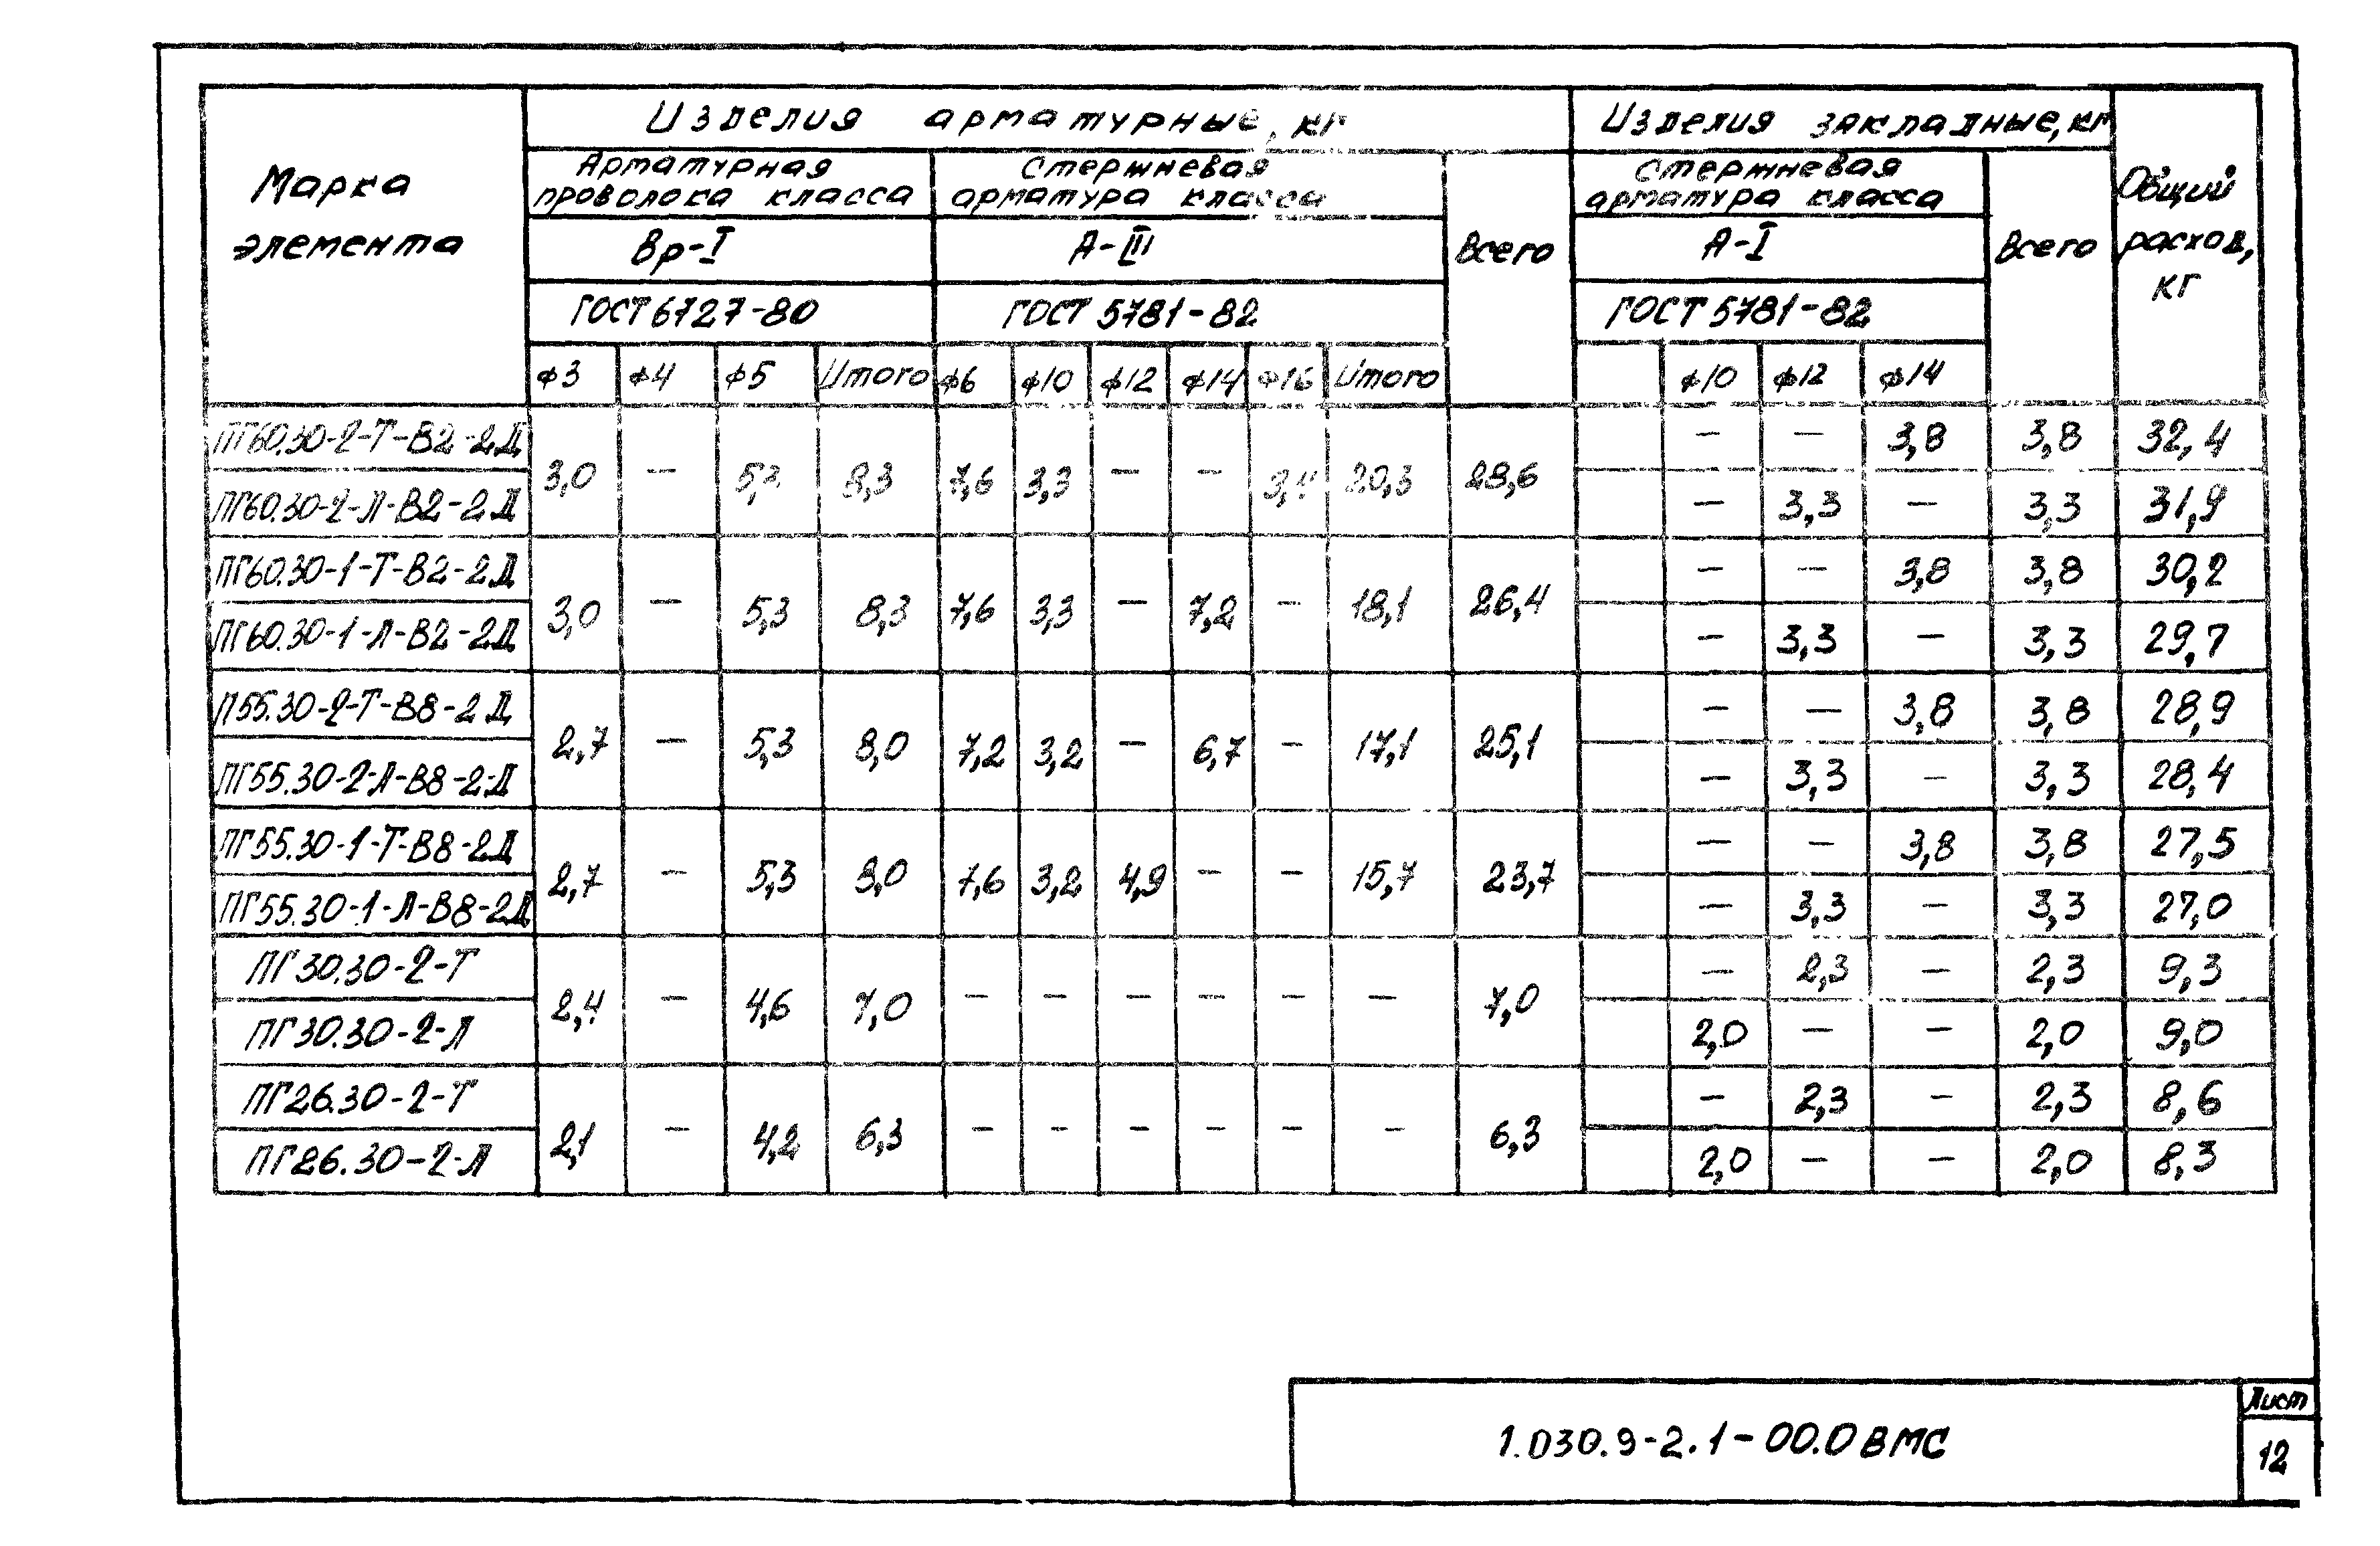 Марка элемента
Изделия арматурные, кг
Изделия закладные, кг
Общий расход, кг
Арматурная проволока класса
Стержневая арматура класса
Всего
Стержневая арматура класса
Всего
Вр-I
А-III
А-I
ГОСТ 6727-80
ГОСТ 5781-82
ГОСТ 5781-82
ф3 ф4 ф5 Итого ф6 ф10 ф12 ф14 ф16 Итого ф10 ф12 ф14
ПГ60.30-2-Т-В2-2Д — — 3,8 3,8 32,4
3,0 — 5,3 8,3 7,6 3,3 — — 20,3 28,6
ПГ60.30-2-Л-В2-2Д — 3,3 — 3,3 31,9
ПГ60.30-1-Т-В2-2Д — — 3,8 3,8 30,2
3,0 — 5,3 8,3 7,6 3,3 — 7,2 — 18,1 26,4
ПГ60.30-1-Л-В2-2Д — 3,3 — 3,3 29,7
П55.30-2-Т-В8-2Д — — 3,8 3,8 28,9
2,7 — 5,3 8,0 7,2 3,2 — 6,7 — 17,1 25,1
ПГ55.30-2-Л-В8-2Д — 3,3 — 3,3 28,4
ПГ55.30-1-Т-В8-2Д — — 3,8 3,8 27,5
2,7 — 5,3 8,0 7,6 3,2 4,9 — — 15,7 23,7
ПГ55.30-1-Л-В8-2Д — 3,3 — 3,3 27,0
ПГ30.30-2-Т — 2,3 — 2,3 9,3
2,4 — 4,6 7,0 — — — — — — 7,0
ПГ30.30-2-Л 2,0 — — 2,0 9,0
ПГ26.30-2-Т — 2,3 — 2,3 8,6
2,1 — 4,2 6,3 — — — — — — 6,3
ПГ26.30-2-Л 2,0 — — 2,0 8,3
1.030.9-2.1-00.0ВМС
Лист
12